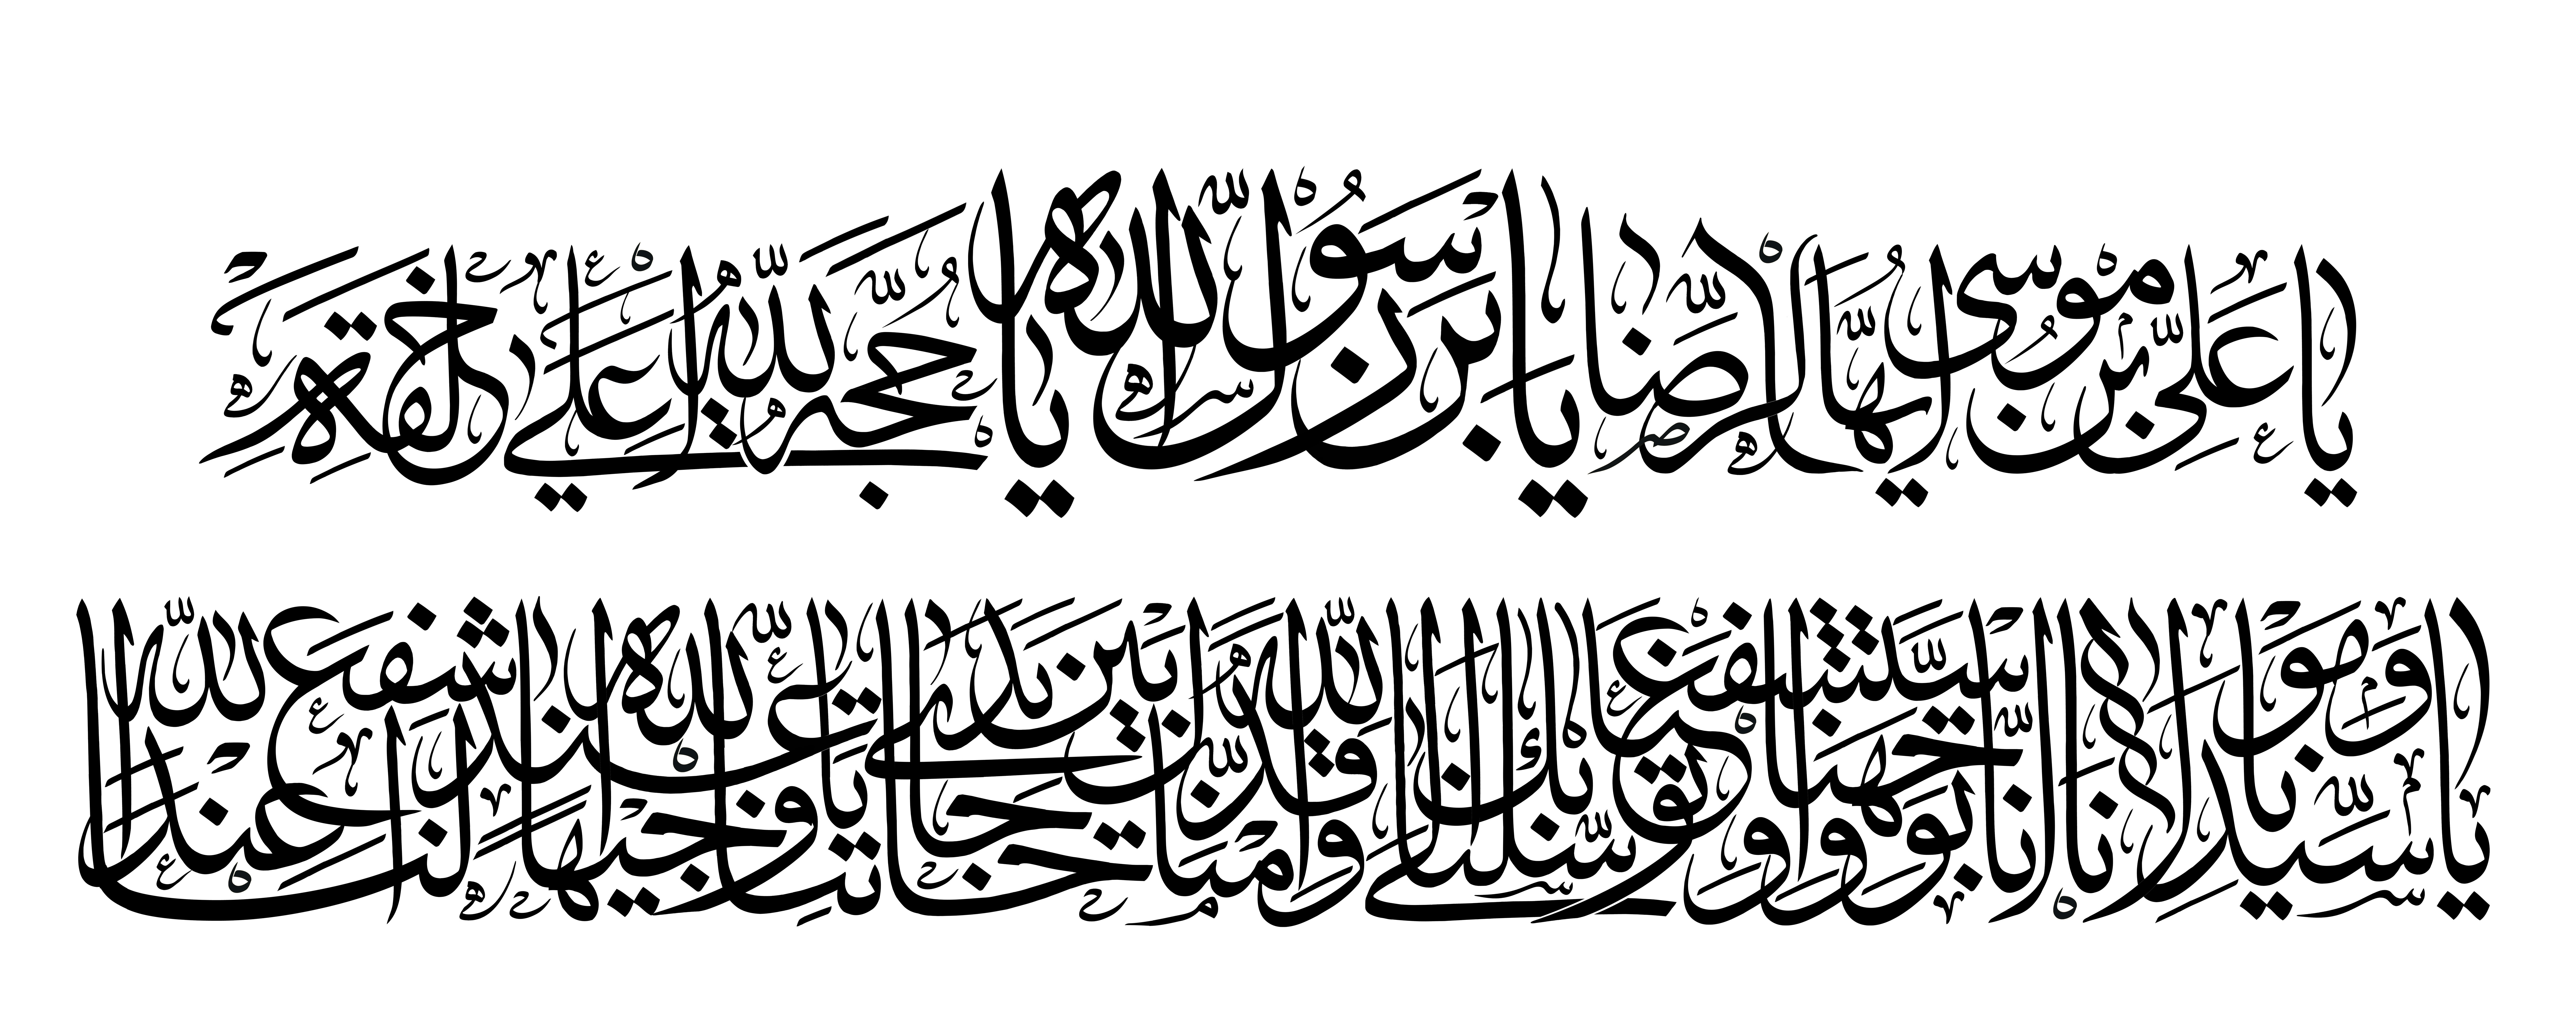 يا عَلِيَّ بْنَ مُوسَى أَيُّهَا الرِّضَا يَا بْنَ رَسُولِ اللهِ يا حُجَّةَ اللهِ عَلى خَلْقِهِ
يا سَيِّدَنا وَمَوْلانا إِنَّا تَوَجَّهْنا وَاسْتَشْفَعْنا وَتَوَسَّلْنا بِكَ إِلَى اللهِ وَقَدَّمْناكَ بَيْنَ يَدَيْ حاجاتِنا يا وَجِيهاً عِنْدَ اللهِ اشْفَعْ لَنا عِنْدَ اللهِ